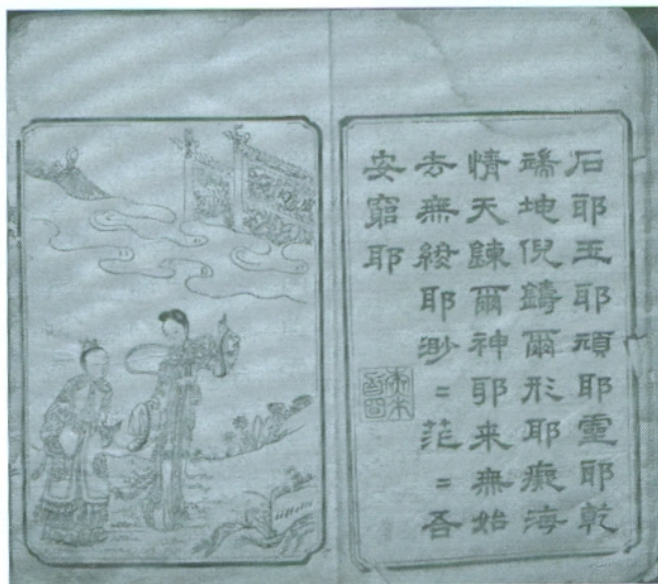 石耶玉耶頑耶靈耶乾
端坤倪鑄爾形耶癡海
情天鍊爾神耶来無始
去無終耶渺〻茫〻吾
安窮耶